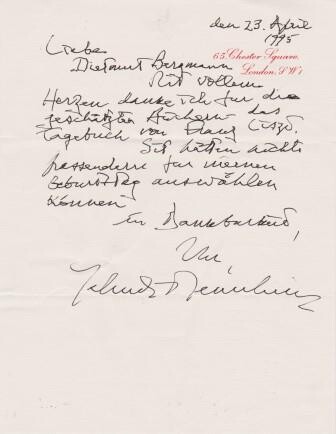 den 23. April
1995
65, Chester Square,
London, S.W.1
Lieber
Dietmut Bergmann
Mit vollem
Herzen danke ich für die
geschätzten Büchern das
Tagebuch von Franz Liszt.
Sie hätten nichts
passenderes für meinen
Geburtstag auswählen
können
in Dankbarkeit,
Ihr,
Yehudi Menuhin